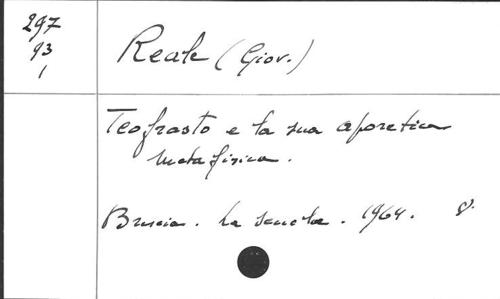 297
93
1
Reale (Giov.)
Teofrasto e la sua aporetica
metafisica.
Brescia. La scuola. 1964. 8.